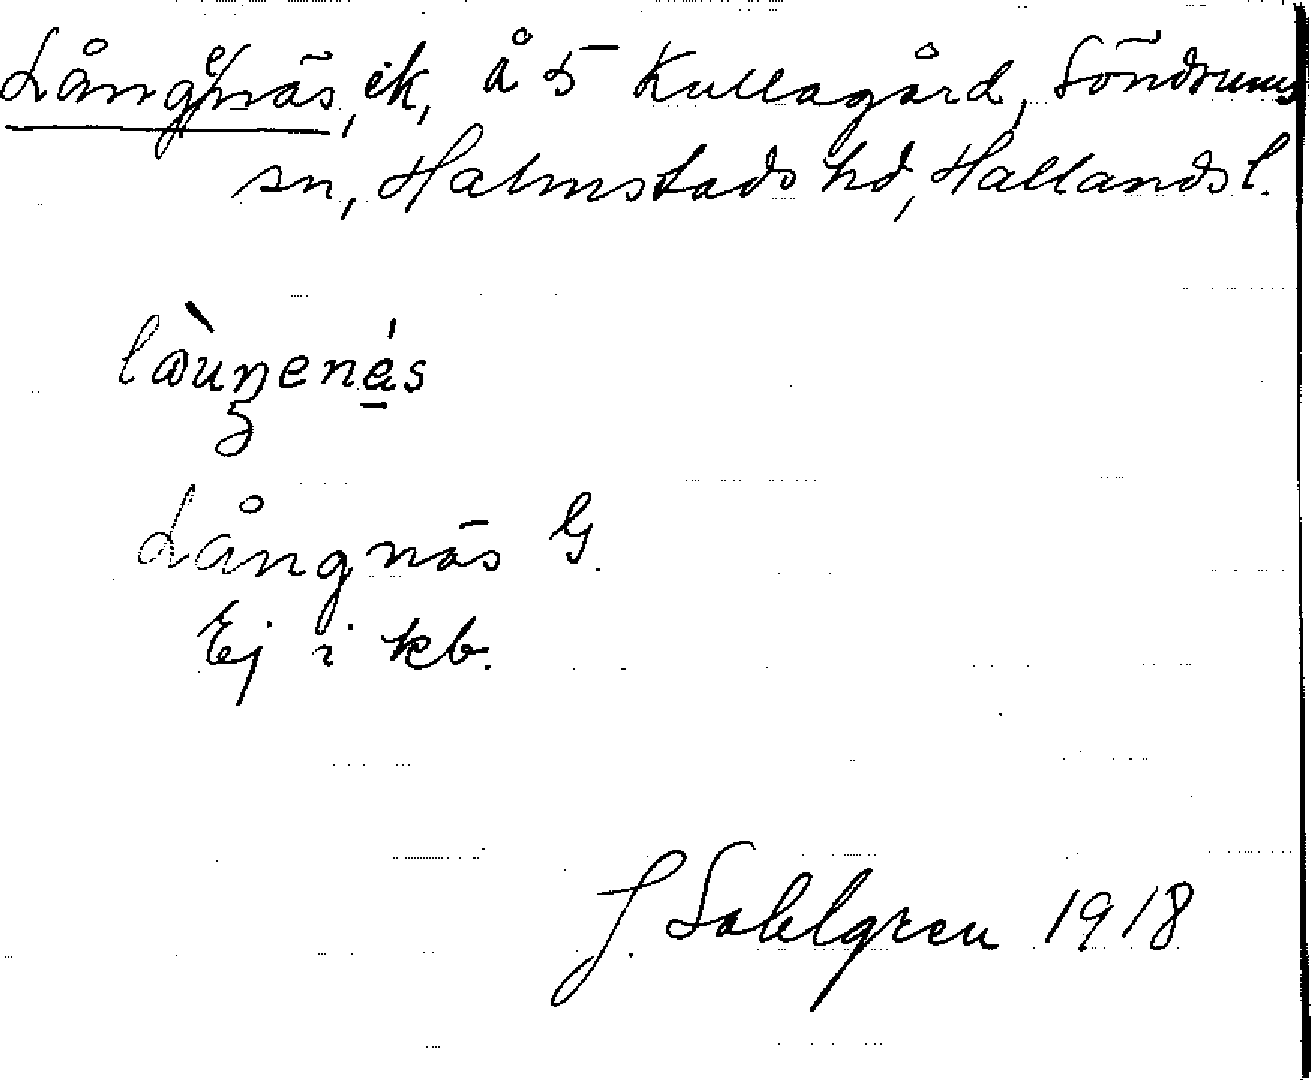 Långenäs, ik, å 5 Kullagård, Söndrums
sn, Halmstads hd, Hallands l.
Långnäs G.
Ej i kb.
J. Sahlgren 1918